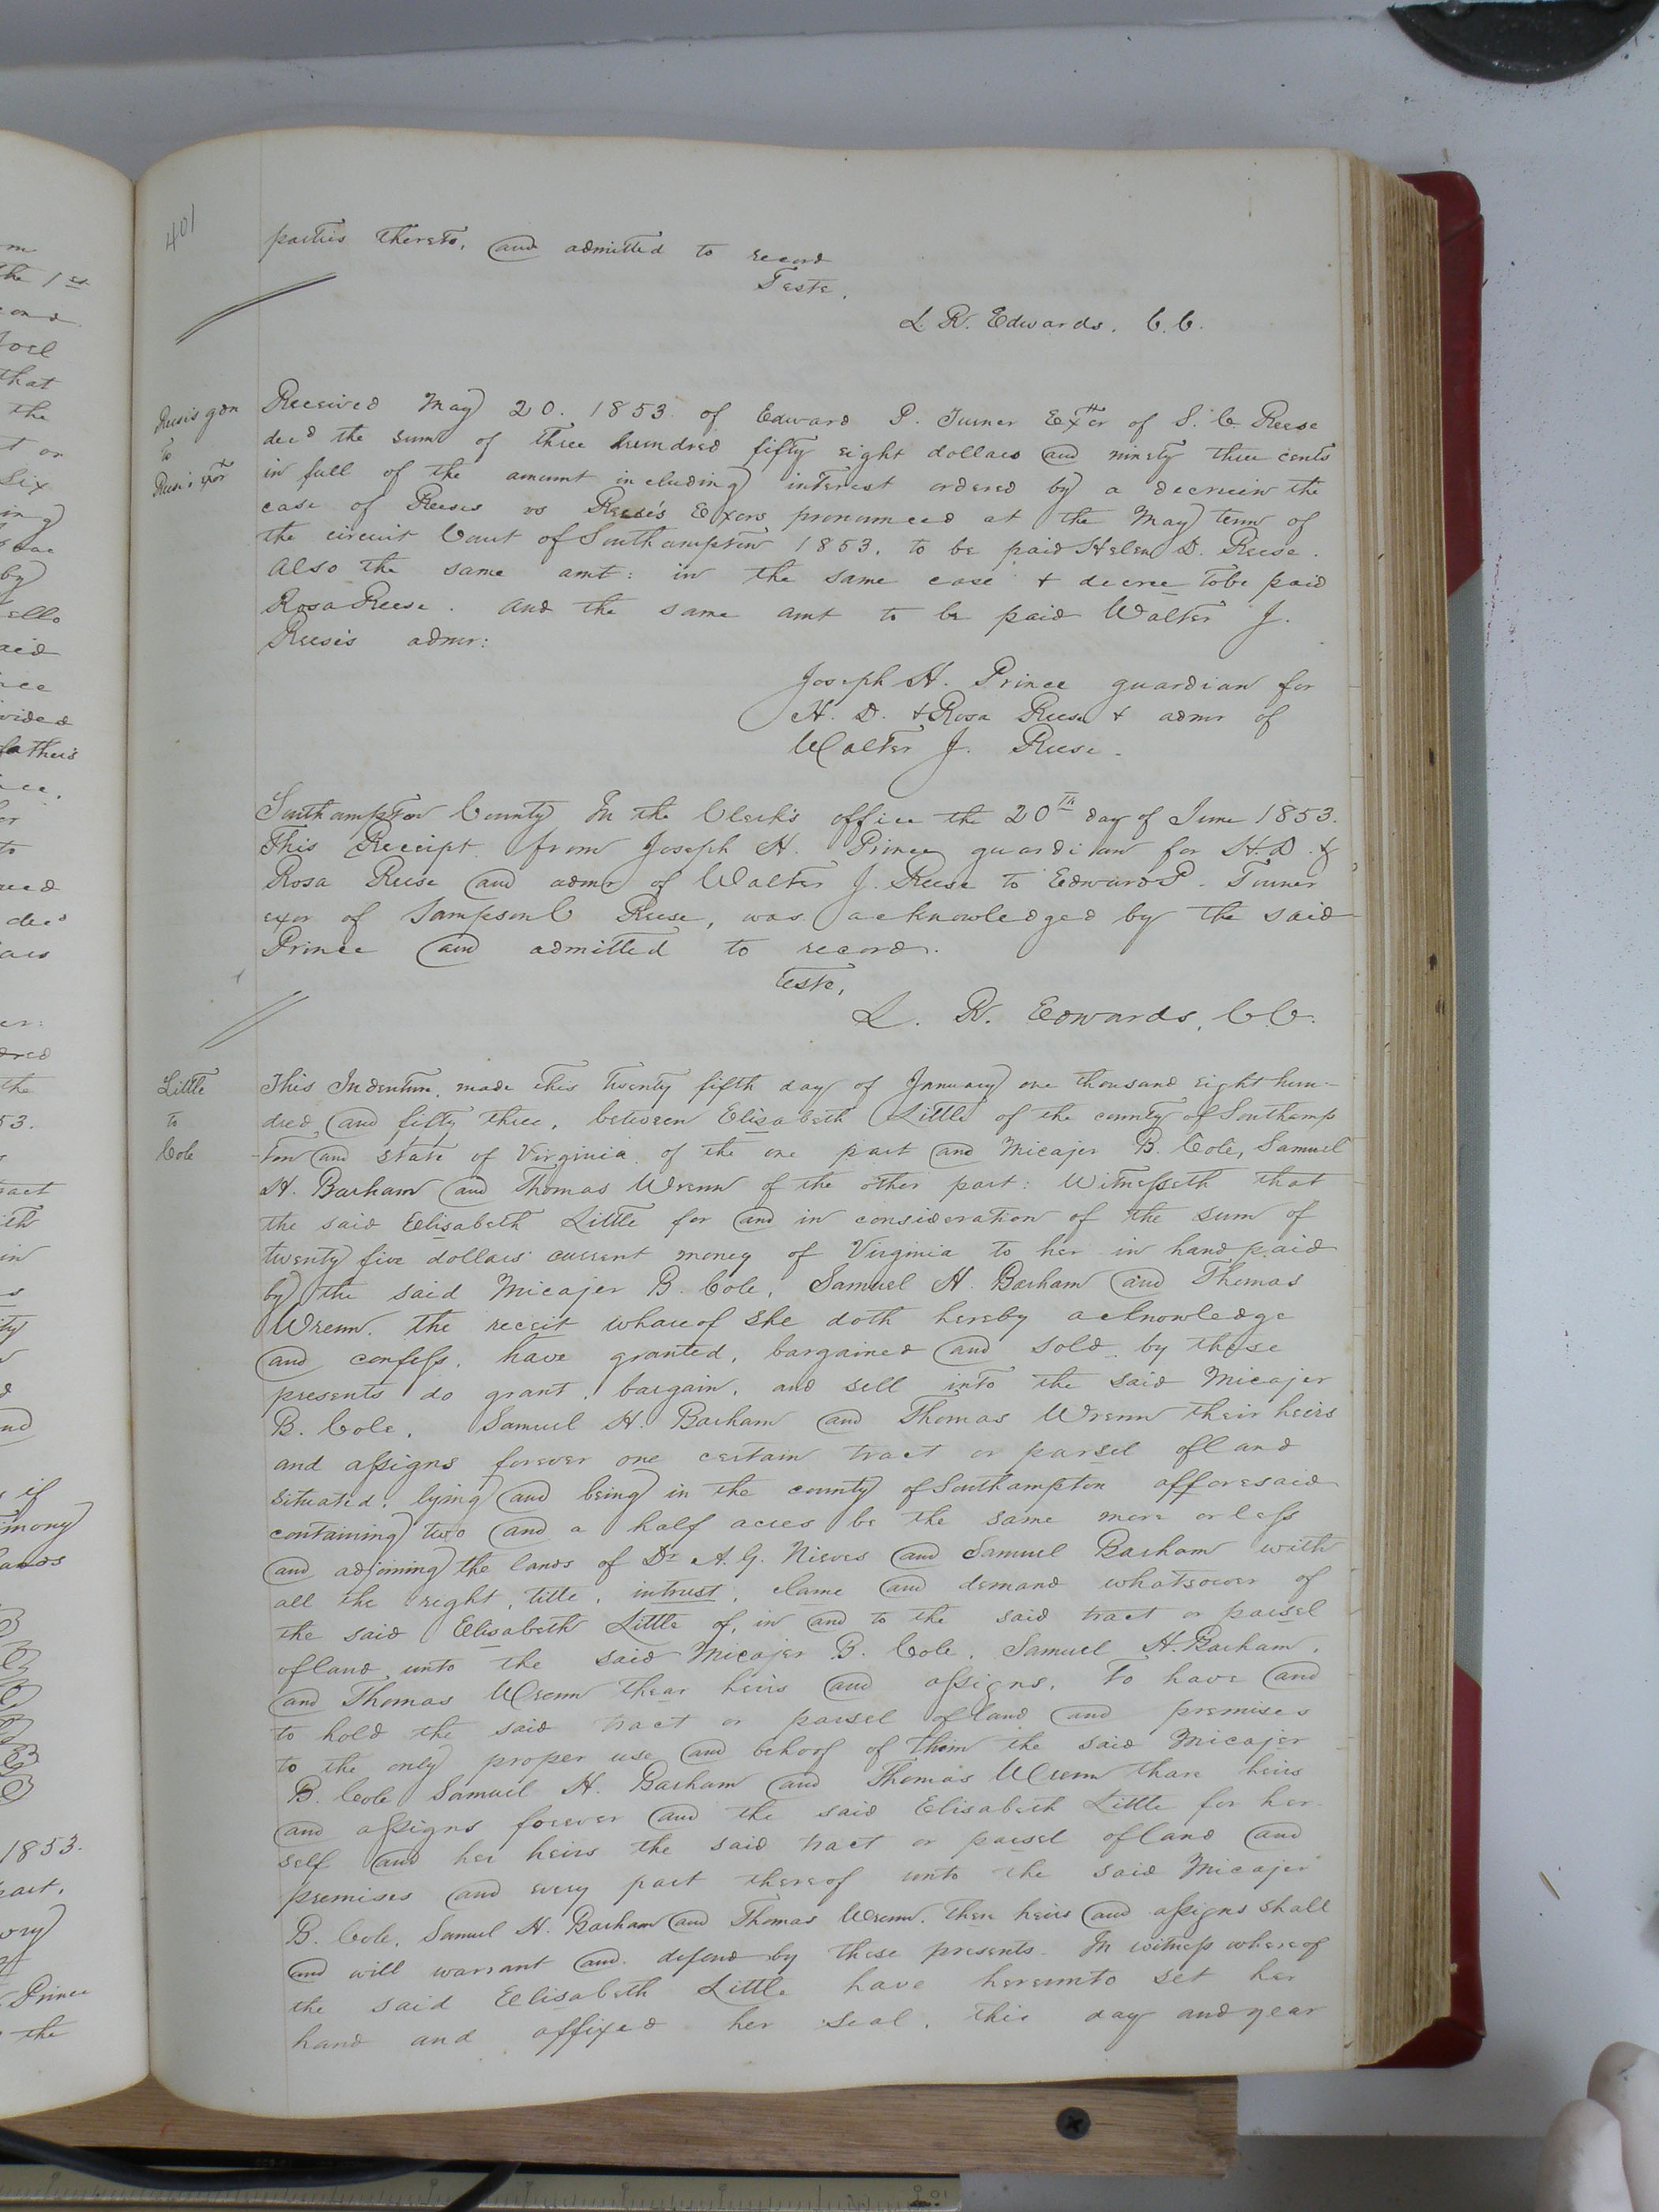 401
parties thereto, and admitted to record
Teste,
L. R. Edwards. C. C.
Reese's gdn
to
Reese's exor
Received May 20. 1853. of Edward P. Turner Exor of S. C. Reese
decd the sum of three hundred fifty eight dollars and ninety three cents
in full of the amount including interest ordered by a decree in the
case of Reeses vs Reese's Exors pronounced at the May term of
the circuit Court of Southampton 1853. to be paid Helen D. Reese.
Also the same amt: in the same case & decree to be paid
Rosa Reese. And the same amt to be paid Walter J.
Reese's admr:
Joseph H. Prince guardian for
H. D. & Rosa Reese & admr of
Walter J. Reese.
Southampton County In the Clerk's office the 20th day of June 1853.
This Receipt from Joseph H. Prince guardian for H. D. &
Rosa Reese and admr of Walter J. Reese to Edward P. Turner
exor of Sampson C Reese, was acknowledged by the said
Prince and admitted to record.
Teste,
L. R. Edwards, C. C.
Little
to
Cole
This Indenture, made this twenty fifth day of January one thousand eight hun-
dred and fifty three, between Elisabeth Little of the county of Southamp
-ton and state of Virginia of the one part and Micajer B. Cole, Samuel
H. Barham and Thomas Wrenn of the other part: Witnesseth that
the said Elisabeth Little for and in consideration of the sum of
twenty five dollars current money of Virginia to her in hand paid
by the said Micajer B. Cole, Samuel H. Barham and Thomas
Wrenn. the receit whareof she doth hereby acknowledge
and confess, have granted, bargained and sold by these
presents do grant, bargain, and sell into the said Micajer
B. Cole, Samuel H. Barham and Thomas Wrenn their heirs
and assigns forever one certain tract or parsel of land
situated, lying and being in the county of Southampton afforesaid
containing two and a half acres be the same more or less
and adjoining the lands of Dr A. G. Nieves and Samuel Barham with
all the right, title, intrust, clame and demand whatsoever of
the said Elisabeth Little of, in and to the said tract or parsel
of land unto the said Micajer B. Cole, Samuel H. Barham,
and Thomas Wrenn thear heirs and assigns, To have and
to hold the said tract or parsel of land and premises
to the only proper use and behoof of them the said Micajer
B. Cole Samuel H. Barham and Thomas Wrenn thare heirs
and assigns forever and the said Elisabeth Little for her
self and her heirs the said tract or parsel of land and
premises and every part thereof unto the said Micajer
B. Cole, Samuel H. Barham and Thomas Wrenn. there heirs and assigns shall
and will warrant and defend by these presents. In witness whereof
the said Elisabeth Little have hereunto set her
hand and affixed her seal, this day and year